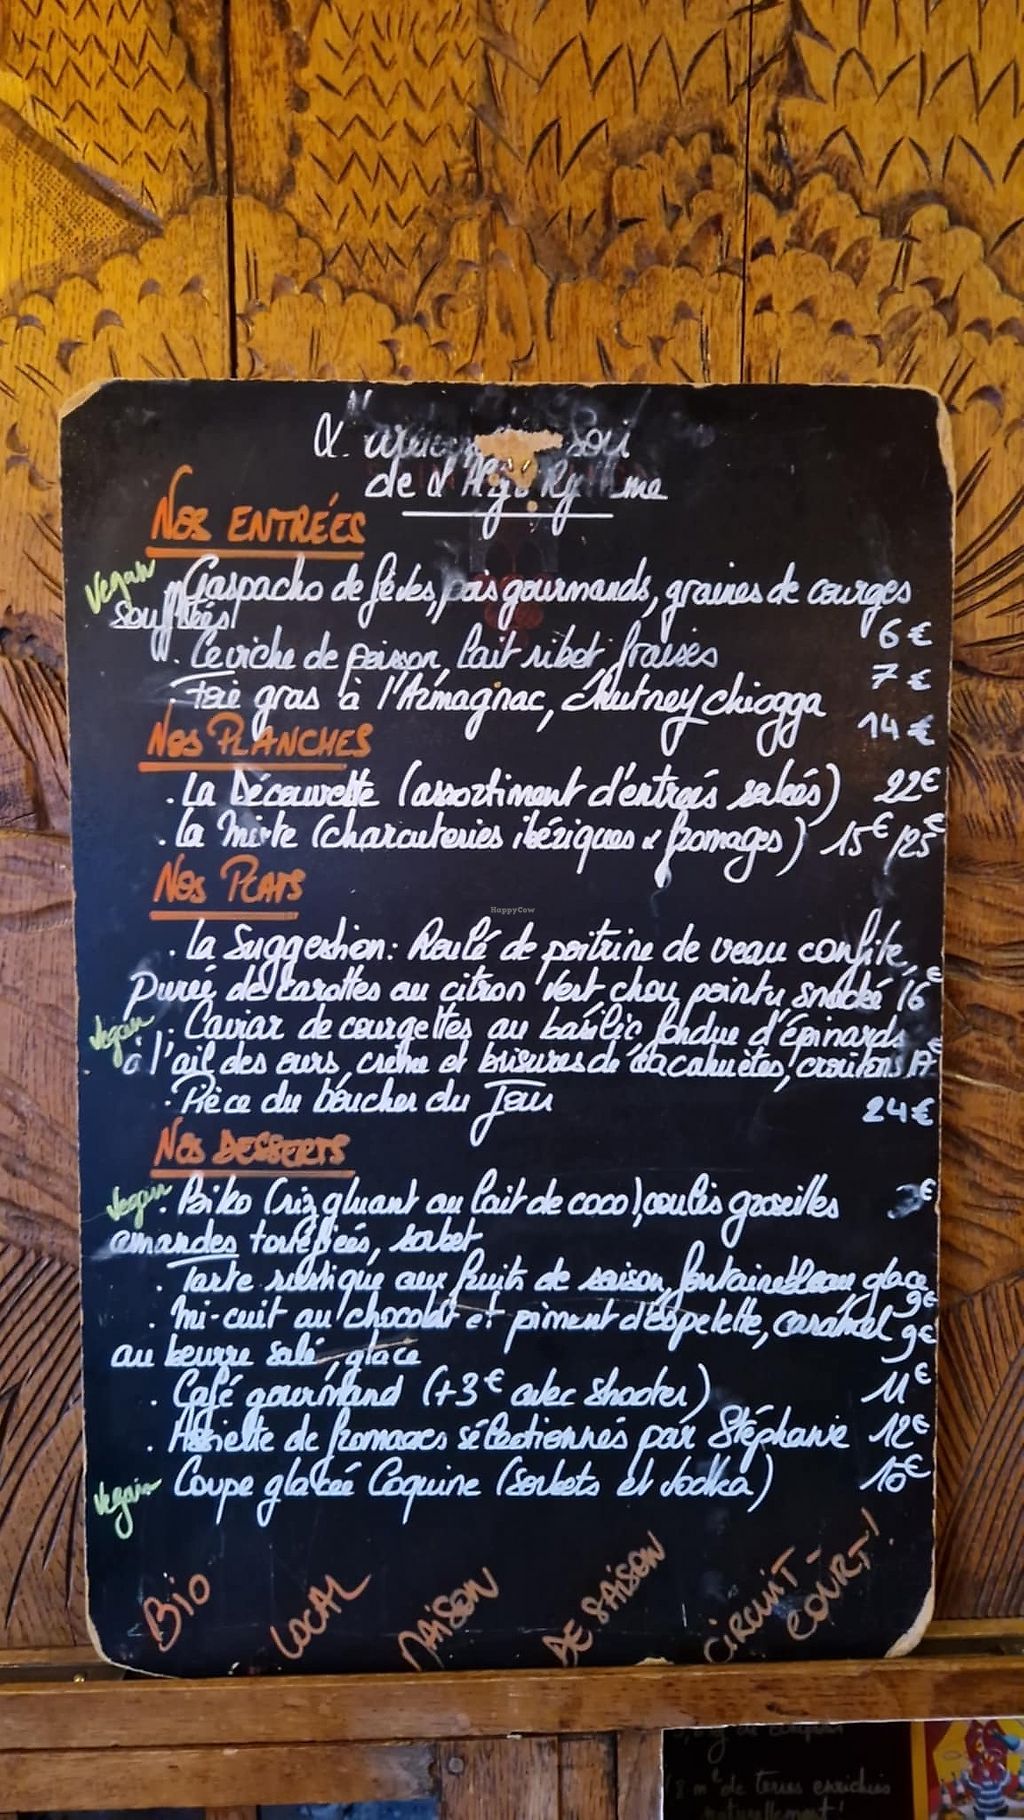 de l'Algo Rythme
NOS ENTRÉES
Vegan . Gaspacho de fèves, pois gourmands, graines de courges
soufflées 6€
. Ceviche de poisson, lait ribot fraises 7€
. Foie gras à l'Armagnac, chutney chiogga 14€
NOS PLANCHES
. La Découverte (assortiment d'entrées salées) 22€
. La Mixte (charcuteries ibériques & fromages) 15€/25€
NOS PLATS
. La Suggestion: Roulé de poitrine de veau confite,
Purée de carottes au citron vert, chou pointu snacké 16€
Vegan . Caviar de courgettes au basilic, fondue d'épinards
à l'ail des ours, crème et brisures de cacahuètes, croutons 17€
. Pièce du boucher du Jour 24€
NOS DESSERTS
Vegan . Biko (riz gluant au lait de coco), coulis groseilles €
amandes torréfiées, sorbet
. Tarte rustique aux fruits de saison, fontainebleau, glace
9€
. Mi-cuit au chocolat et piment d'espelette, caramel 9€
au beurre salé, glace
. Café gourmand (+3€ avec shooter) 11€
. Assiette de fromages sélectionnés par Stéphanie 12€
Vegan . Coupe glacée Coquine (sorbets et vodka) 10€
BIO LOCAL MAISON DE SAISON CIRCUIT-
COURT!
HappyCow
m² de terres enrichies
naturellement!